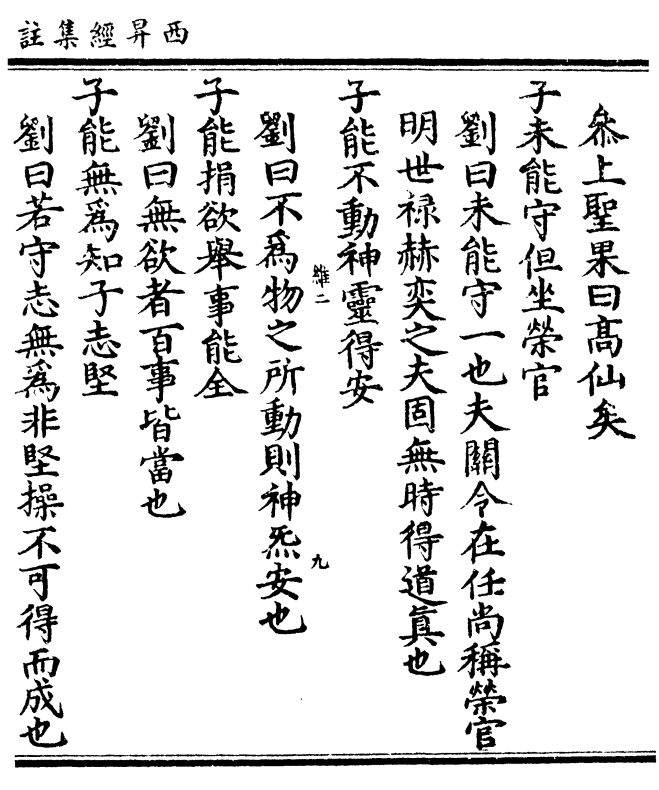 西昇經集註
叅上聖果曰高仙矣
子未能守但坐榮官
劉曰未能守一也夫關令在任尚稱榮官
明世禄赫奕之夫固無時得道真也
子能不動神靈得安
維二
九
劉曰不為物之所動則神炁安也
子能捐欲舉事能全
劉曰無欲者百事皆當也
子能無為知子志堅
劉曰若守志無為非堅操不可得而成也